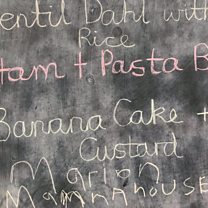 entil Dahl with
Rice
Ham + Pasta B
Banana Cake +
Custard
Marion
Mamna house